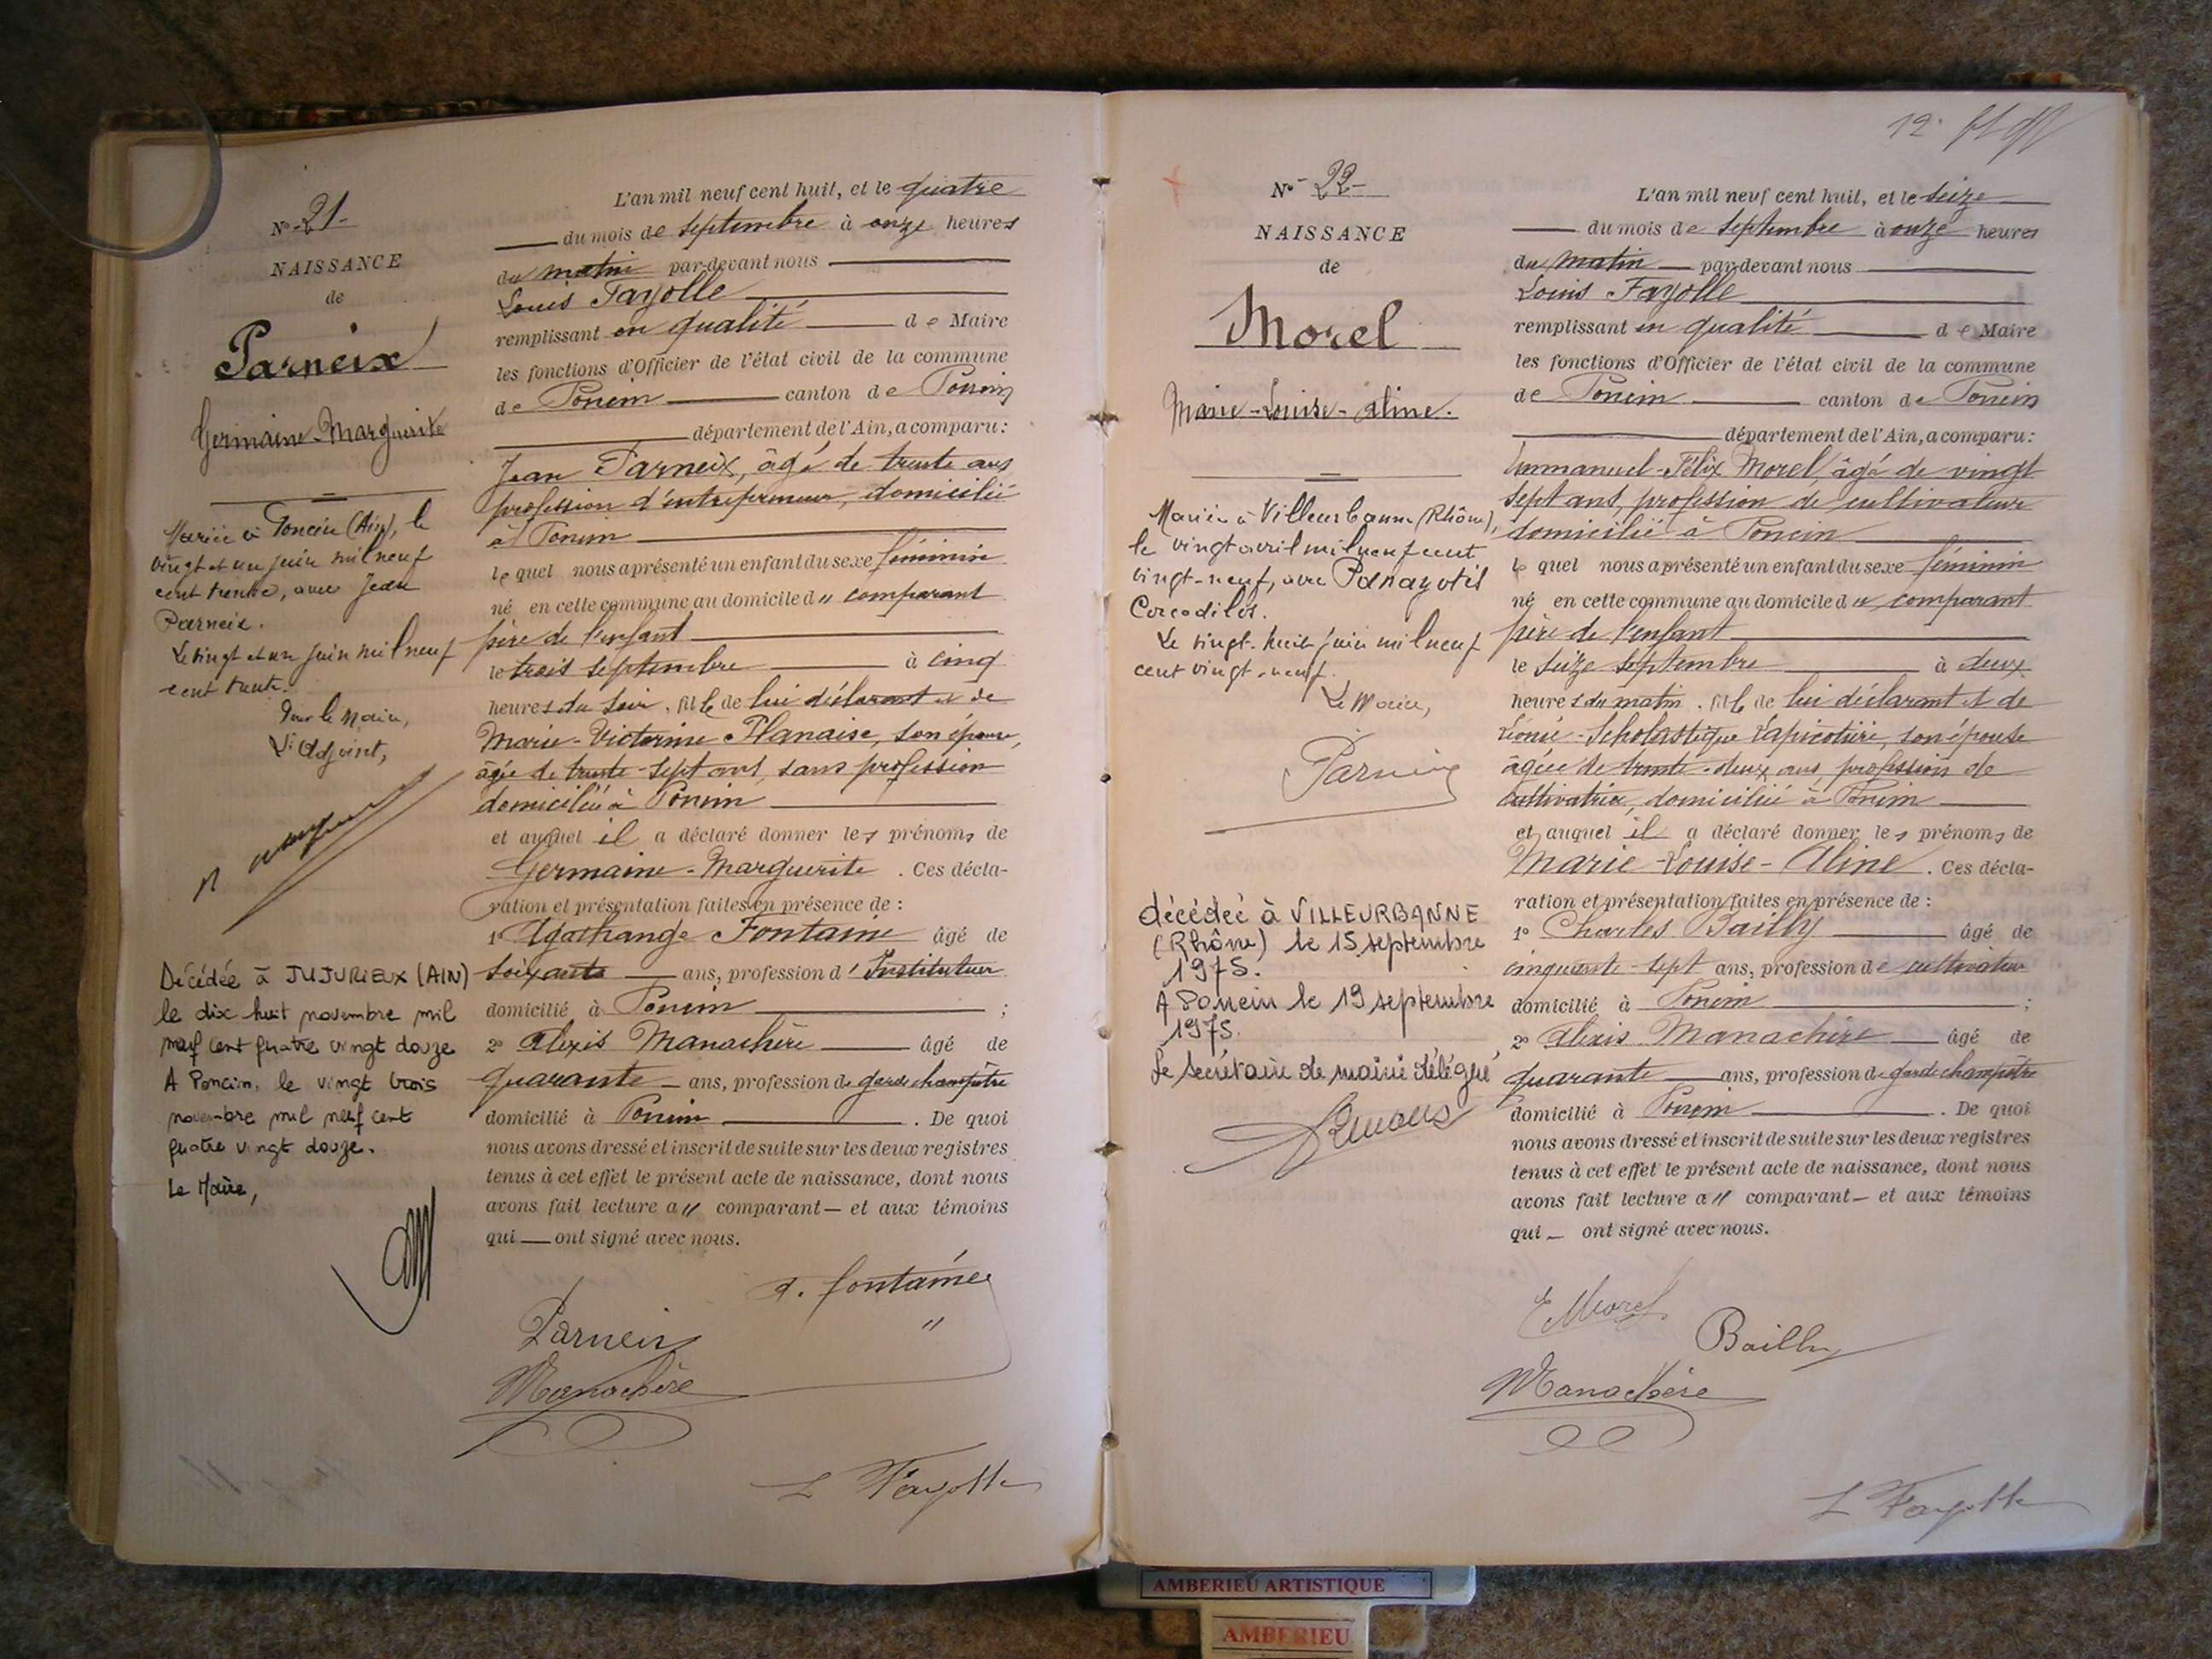 N° 21
NAISSANCE
de
Parneix
Germaine-Marguerite
Mariée à Poncin (Ain), le
vingt et un juin mil neuf
cent trente, avec Jean
Parneix.
Le vingt et un juin mil neuf
cent trente.
Pour le Maire,
L'Adjoint,
Décédée à JUJURIEUX (AIN)
le dix huit novembre mil
neuf cent quatre vingt douze
A Poncin, le vingt trois
novembre mil neuf cent
quatre vingt douze.
Le Maire,
L'an mil neuf cent huit, et le quatre
du mois de septembre à onze heures
du matin par-devant nous
Louis Fayolle
remplissant en qualité de Maire
les fonctions d'Officier de l'état civil de la commune
de Poncin canton de Poncin
département de l'Ain, a comparu:
Jean Parneix, âgé de trente ans
profession d'entrepreneur, domicilié
à Poncin
lequel nous a présenté un enfant du sexe féminin
né en cette commune au domicile du comparant
père de l'enfant
le trois septembre à cinq
heures du soir, fille de lui déclarant et de
Marie-Victorine Planaise, son épouse,
âgée de trente-sept ans, sans profession
domiciliée à Poncin
et auquel il a déclaré donner les prénoms de
Germaine-Marguerite. Ces décla-
ration et présentation faites en présence de :
1° Agathange Fontaine âgé de
soixante ans, profession d'Instituteur
domicilié à Poncin ;
2° Alexis Manachère âgé de
quarante ans, profession de garde champêtre
domicilié à Poncin. De quoi
nous avons dressé et inscrit de suite sur les deux registres
tenus à cet effet le présent acte de naissance, dont nous
avons fait lecture au comparant et aux témoins
qui ont signé avec nous.
A. Fontaine
Parneix
Manachère
L Fayolle
12
N° 22
NAISSANCE
de
Morel
Marie-Louise-Aline.
Mariée à Villeurbanne (Rhône),
le vingt avril mil neuf cent
vingt-neuf, avec Panayotis
Corcodilos.
Le vingt-huit juin mil neuf
cent vingt-neuf.
Le Maire,
décédée à VILLEURBANNE
(Rhône) le 15 septembre
1975.
A Poncin le 19 septembre
1975.
Le secrétaire de mairie délégué
L'an mil neuf cent huit, et le seize
du mois de septembre à onze heures
du matin par-devant nous
Louis Fayolle
remplissant en qualité de Maire
les fonctions d'Officier de l'état civil de la commune
de Poncin canton de Poncin
département de l'Ain, a comparu:
Emmanuel-Félix Morel, âgé de vingt
sept ans, profession de cultivateur
domicilié à Poncin
lequel nous a présenté un enfant du sexe féminin
né en cette commune au domicile du comparant
père de l'enfant
le seize septembre à deux
heures du matin, fille de lui déclarant et de
Léonie-Scholastique Lapicotière, son épouse
âgée de trente-deux ans, profession de
cultivatrice, domiciliée à Poncin
et auquel il a déclaré donner les prénoms de
Marie-Louise-Aline. Ces décla-
ration et présentation faites en présence de :
1° Charles Bailly âgé de
cinquante-sept ans, profession de cultivateur
domicilié à Poncin ;
2° Alexis Manachère âgé de
quarante ans, profession de garde champêtre
domicilié à Poncin. De quoi
nous avons dressé et inscrit de suite sur les deux registres
tenus à cet effet le présent acte de naissance, dont nous
avons fait lecture au comparant et aux témoins
qui ont signé avec nous.
E Morel
Bailly
Manachère
L Fayolle
AMBERIEU ARTISTIQUE
AMBERIEU